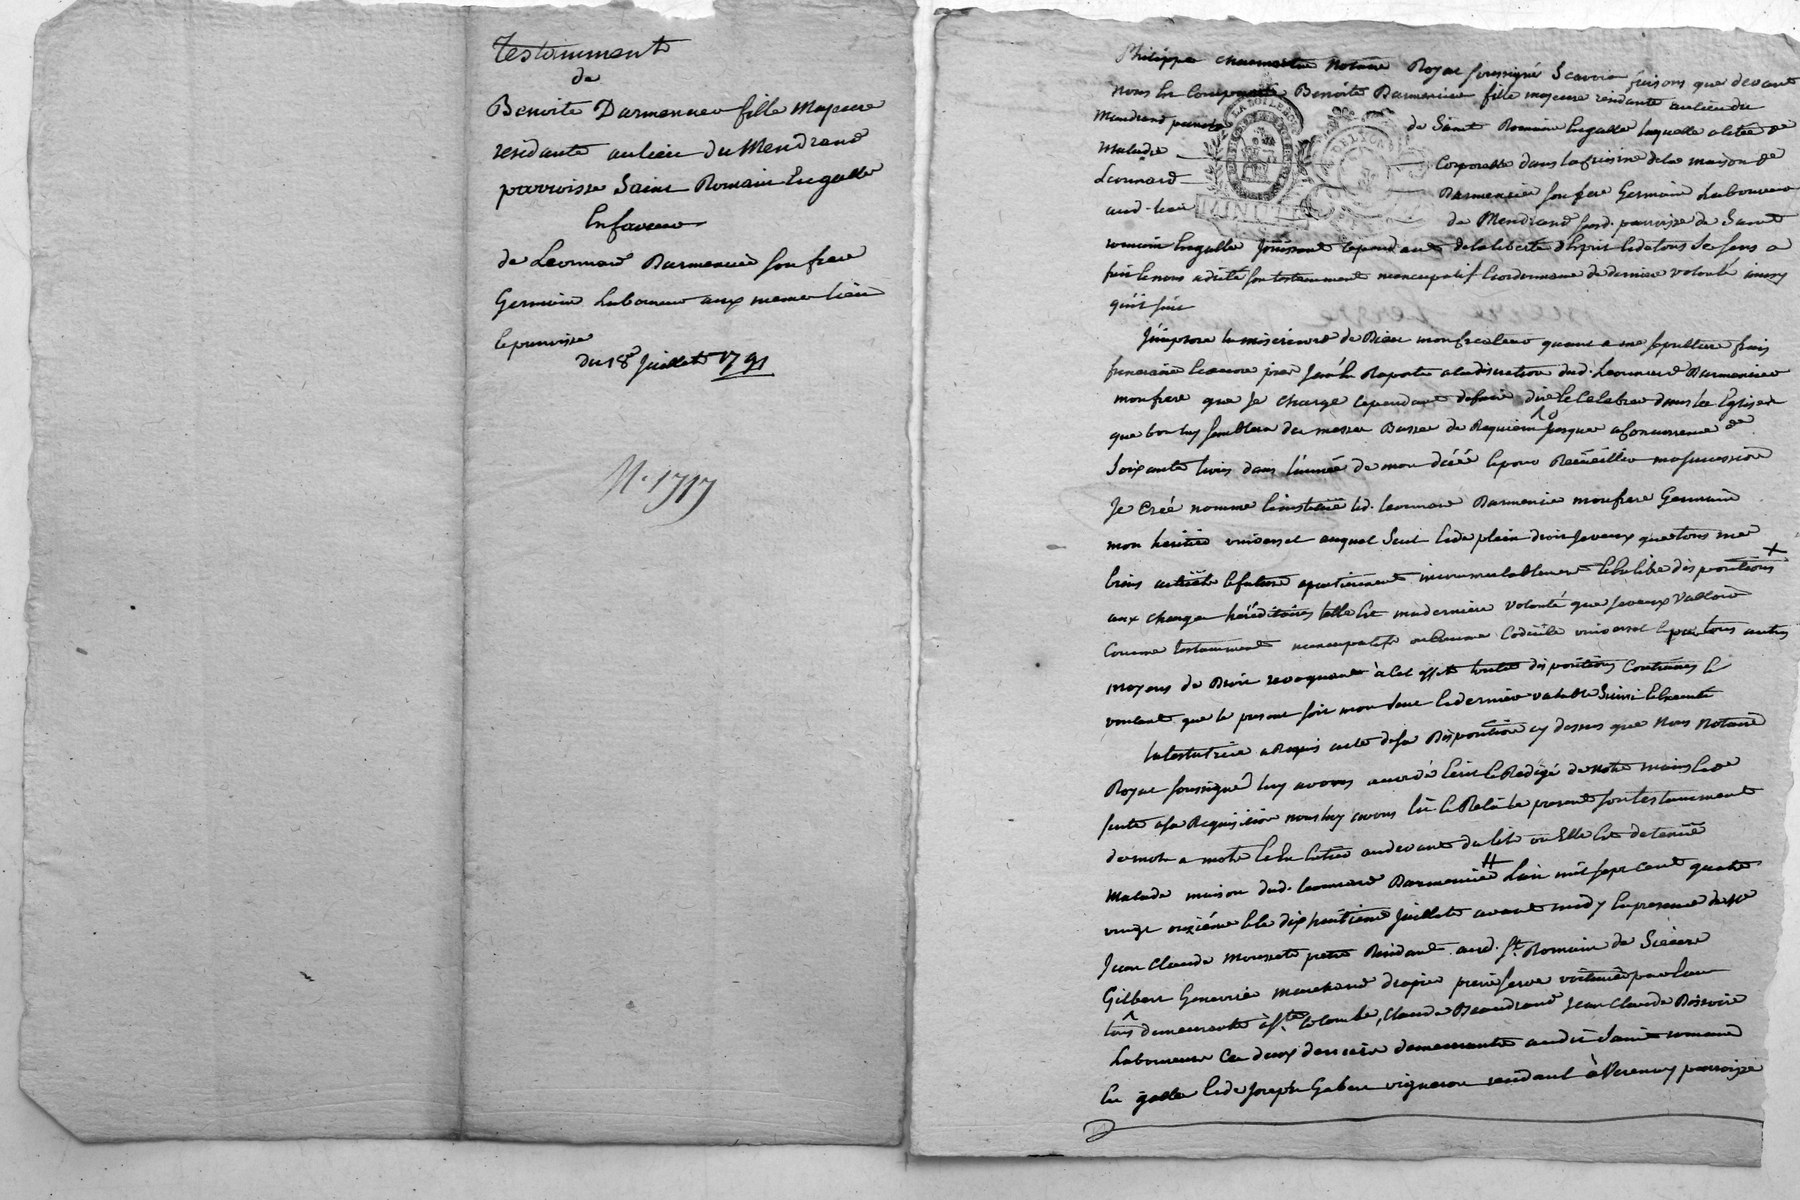 Testamment
de
Benoite Darmencier fille Majeure
residante au lieu du Mendrand
parroisse Saint Romain Engalle
En faveur
de Leonnard Darmencié son frere
Germain Laboureur aux meme lieu
et parroisse
du 18e Juillet 1791
N. 1717
Philippe Notaire Royal soussigné Scavoir faisons que devant
nous Benoite Darmencier fille majeure residante au lieu du
Mendrand parroisse de Saint Romain Engalle laquelle alitée de
Maladie Corporelle dans la cuisine de la maison de
Leonnard Darmencier son frere Germain Laboureur
aud. lieu de Mendrand susd. parroisse de Saint
romain Engalle Jouissant cependant de la liberté d'esprit et de tous ses sens a
fait et nous a dicté son testamment noncupatif et ordonnance de derniere volonté ainsy
qu'il suit
J'implore la misericorde de Dieu mon createur quant a ma sepulture frais
funeraire et œuvre pies J'en me Raporte a la discretion dud. Leonnard Darmencier
mon frere que je charge cependant de faire dire et celebrer dans les Eglises
que bon luy semblera des messes Basses de Requiem Jusques a Concurrence de
Soixante livres dans l'année de mon décé et pour Recueillir ma succession
Je créé nomme et institue led. Leonnard Darmencié mon frere Germain
mon heritier universel auquel Seul et de plein droit Je veux que tous mes
biens actuels et futurs apartiennent incommutablement et en libre dispositions
aux charges héréditaires telle est ma derniere volonté que je veux valloir
Comme testamment noncupatif ou comme Codicile universel et par tous autres
moyens de Droit revoquant à cet effet toutes dispositions Contraires
voulant que le present soit mon seul et dernier valable Suivi et Executé
La testatrice a Requis acte de sa Disposition cy dessus que Nous Notaire
Royal soussigné luy avons accordé Ecrit et Redigé de notre main et de
suite a sa Requisition nous luy avons lu et Relu le present son testamment
de mot a mot et en Entier au devant du lit ou Elle est detenue
Malade maison dud. Leonnard Darmencié L'an mil sept cent quatre
vingt onzieme et le dix huitieme Juillet avant midy En presence de Mre
Jean Claude pretre Residant aud. St. Romain de Sieurs
Gilbert marchand drapier pierre
tous demeurants à Ste Colombe, Claude Jean Claude
Laboureurs Ces deux derniers demeurants audit Saint romain
En galle et de Joseph Gabert vigneron residant à Verenay parroisse